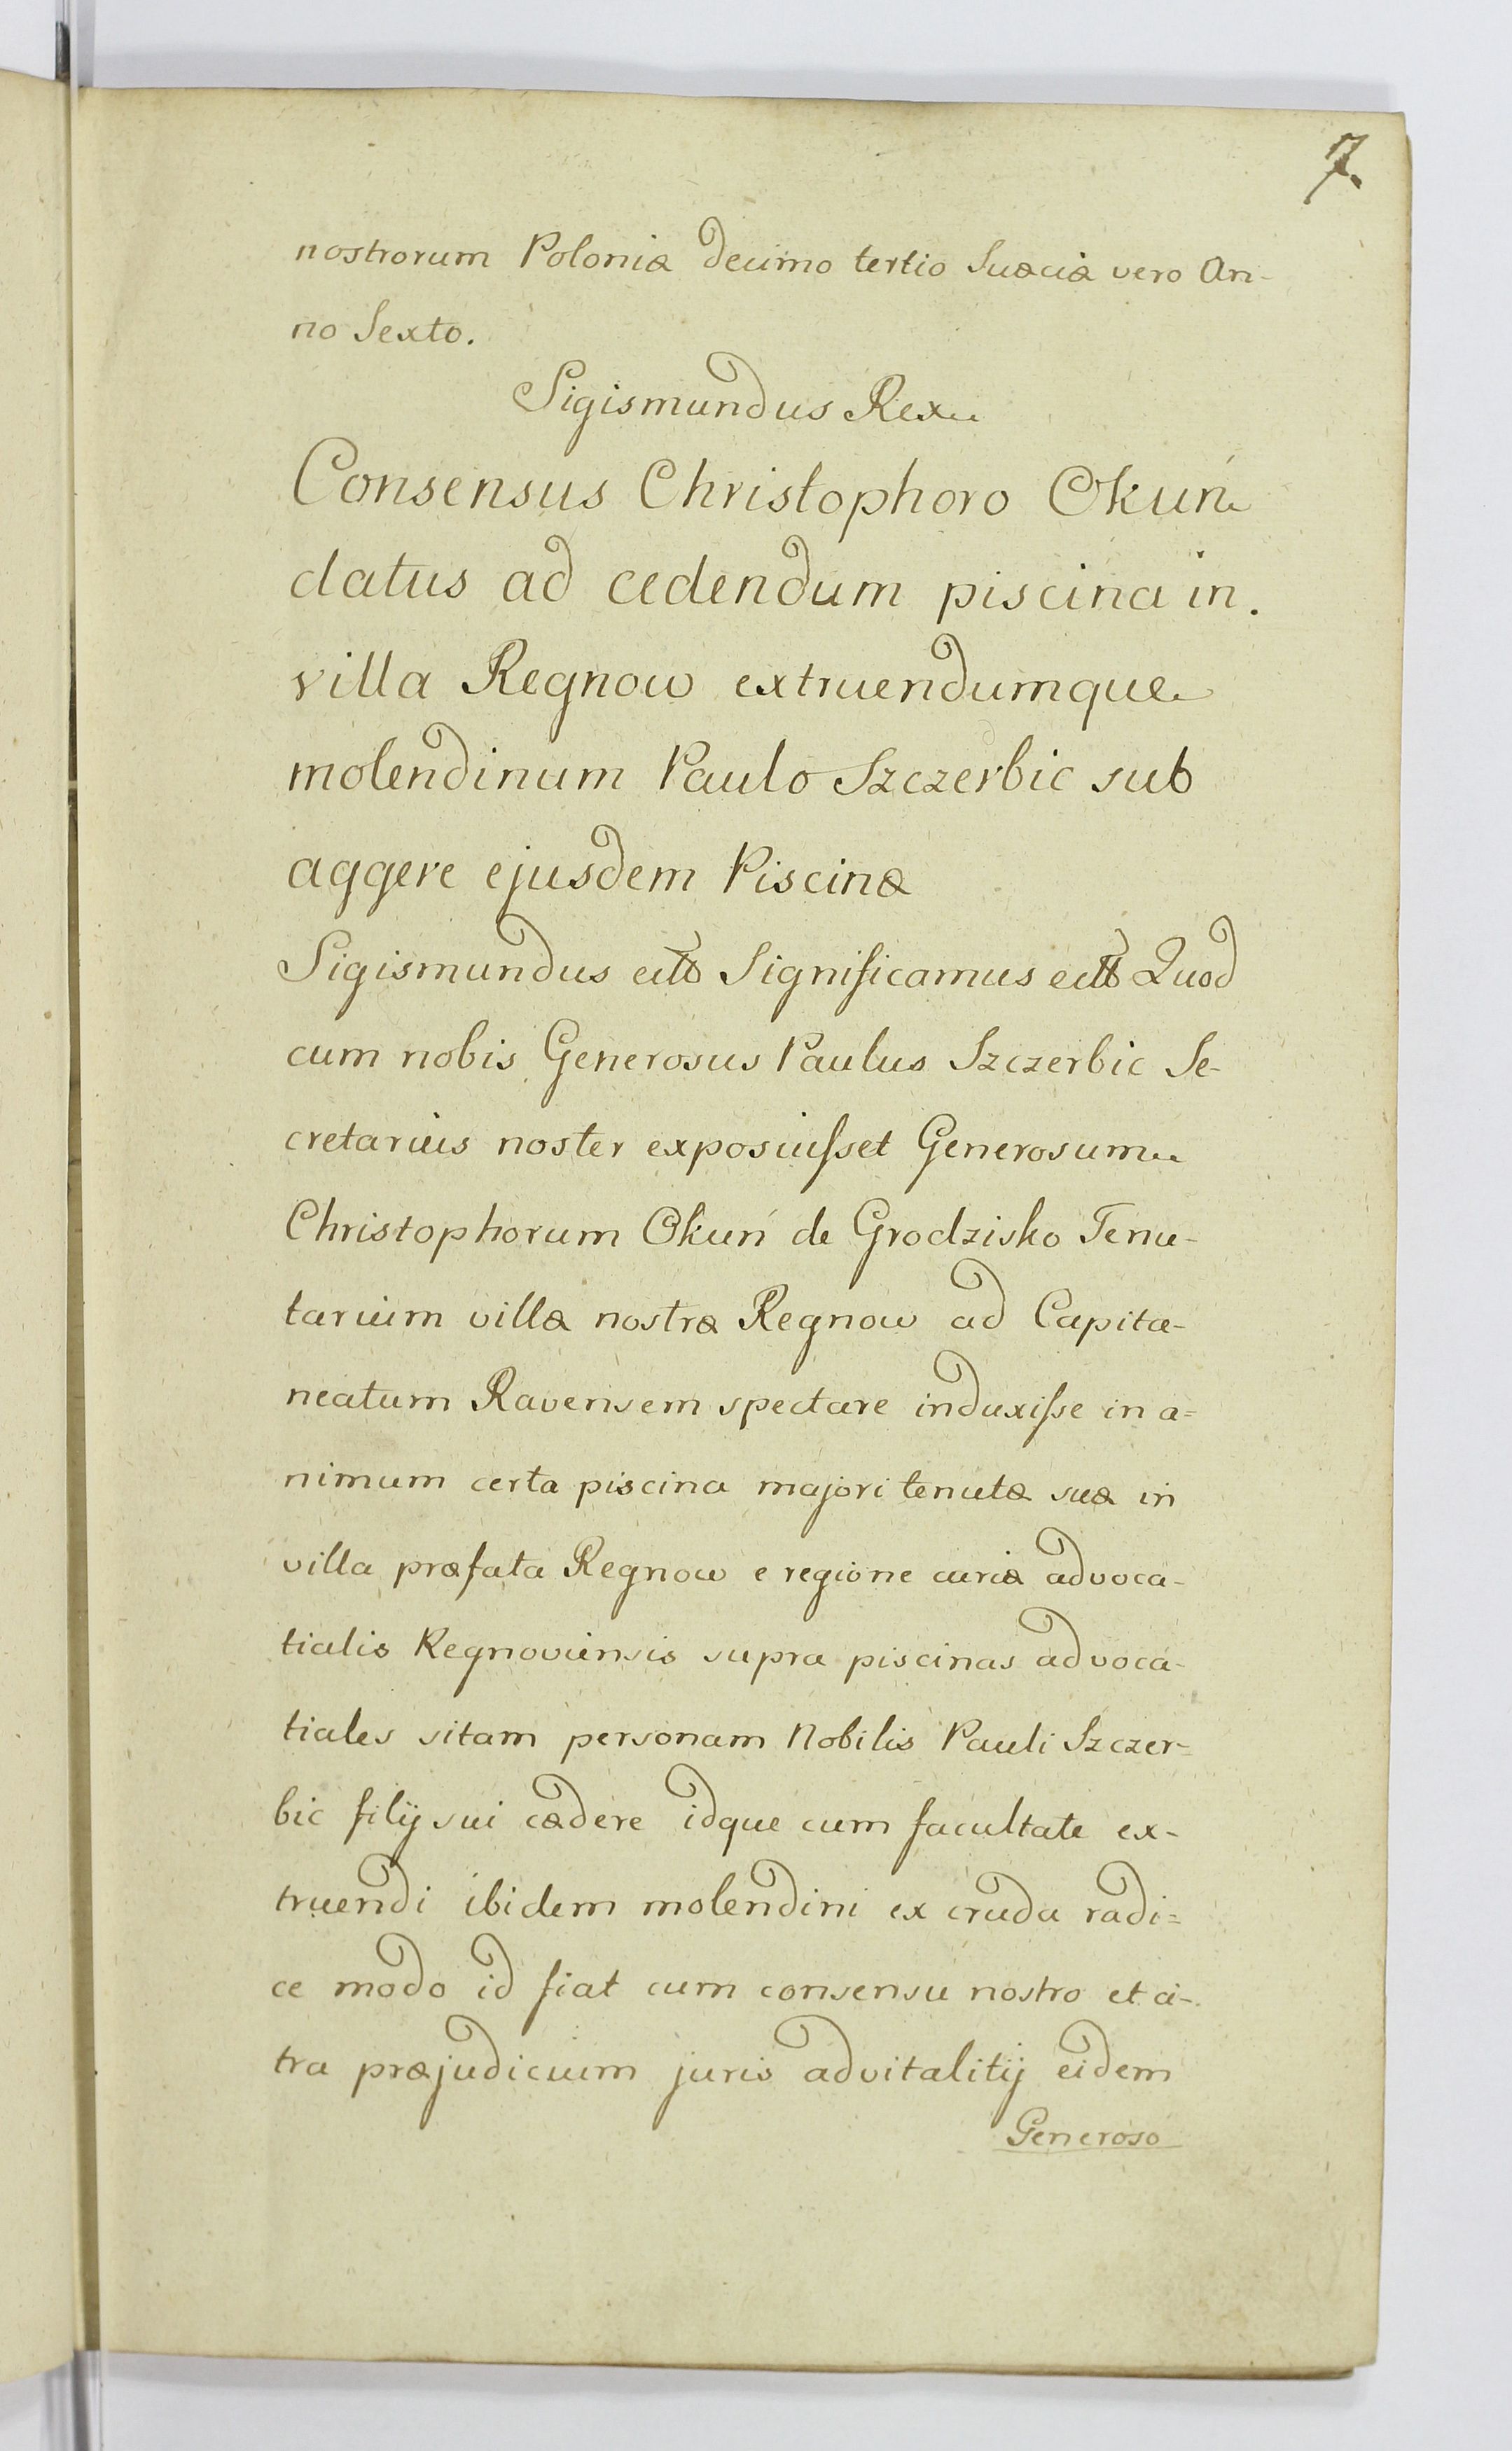 7.
nostrorum Poloniæ decimo tertio Suæciæ vero An-
no Sexto.
Sigismundus Rex
Consensus Christophoro Okuń
datus ad cedendum piscina in.
villa Regnow extruendumque
molendinum Paulo Szczerbic sub
aggere ejusdem Piscinæ
Sigismundus ettc Significamus ettc Quod
cum nobis Generosus Paulus Szczerbic Se-
cretarius noster exposuiſset Generosum
Christophorum Okuń de Grodzisko Tenu-
tarium villæ nostræ Regnow ad Capita-
neatum Ravensem spectare induxiſse in a=
nimum certa piscina majori tenutæ suæ in
villa præfata Regnow e regione curiæ advoca-
tialis Regnoviensis supra piscinas advoca-
tiales sitam personam Nobilis Pauli Szczer=
bic filij sui cædere idque cum facultate ex-
truendi ibidem molendini ex cruda radi=
ce modo id fiat cum consensu nostro et ci-
tra præjudicium juris advitalitij eidem
Generoso